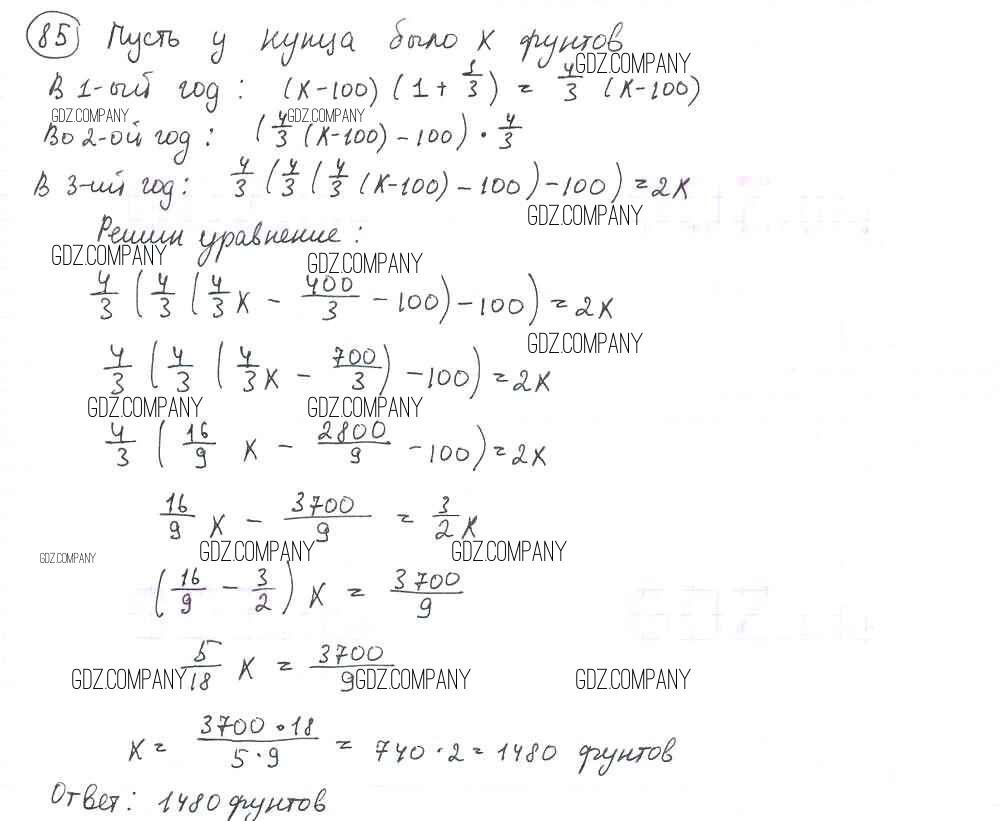 85 Пусть у купца было x фунтов
GDZ.COMPANY
В 1-ый год: (x-100)(1+1/3) = 4/3 (x-100)
GDZ.COMPANY GDZ.COMPANY
Во 2-ой год: (4/3 (x-100) - 100) · 4/3
В 3-ий год: 4/3 (4/3 (4/3 (x-100) - 100) - 100) = 2x
GDZ.COMPANY
Решим уравнение:
GDZ.COMPANY GDZ.COMPANY
4/3 (4/3 (4/3 x - 400/3 - 100) - 100) = 2x
GDZ.COMPANY
4/3 (4/3 (4/3 x - 700/3) - 100) = 2x
GDZ.COMPANY GDZ.COMPANY
4/3 (16/9 x - 2800/9 - 100) = 2x
16/9 x - 3700/9 = 3/2 x
GDZ.COMPANY GDZ.COMPANY GDZ.COMPANY
(16/9 - 3/2) x = 3700/9
5/18 x = 3700/9
GDZ.COMPANY GDZ.COMPANY GDZ.COMPANY
x = 3700·18/5·9 = 740·2 = 1480 фунтов
Ответ: 1480 фунтов